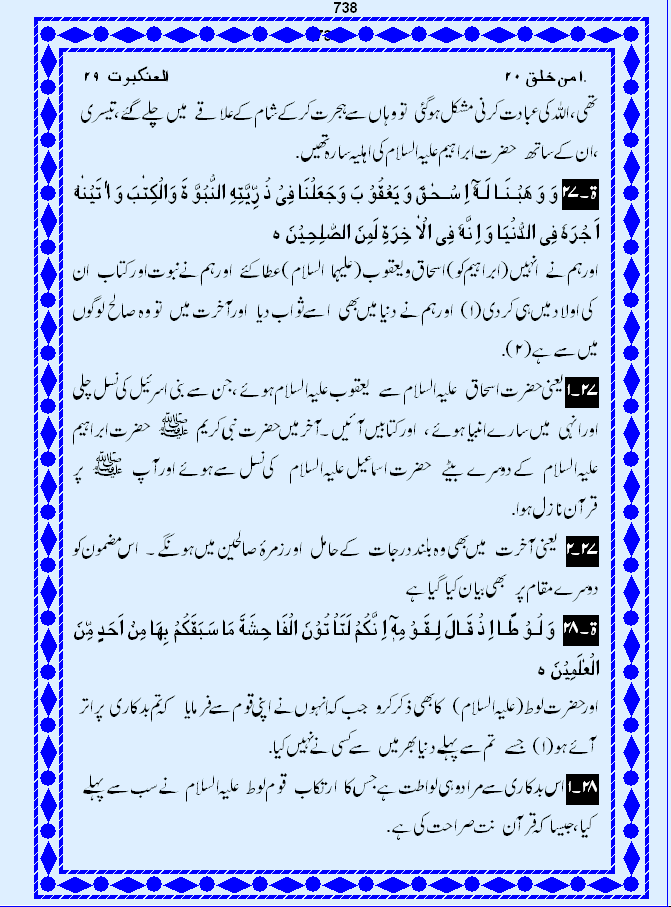 738
امن خلق ۲۰ العنکبوت ۲۹
تھی،اللہ کی عبادت کرنی مشکل ہوگئی تو وہاں سے ہجرت کر کے شام کے علاقے میں چلے گئے،تیسری
،ان کے ساتھ حضرت ابراہیم علیہ السلام کی اہلیہ سارہ تھیں.
ۃ۔۲۷ وَ وَ ھَبْنَا لَہٗٓ اِسْحٰقَ وَ یَعْقُوْ بَ وَجَعَلْنَا فِیْ ذُ رِّیَّتِہِ النُّبُوَّ ۃَ وَالْکِتٰبَ وَ اٰ تَیْنٰہُ
اَجْرَہٗ فِی الدُّنْیَا وَ اِ نَّہٗ فِی الْاٰ خِرَۃِ لَمِنَ الصّٰلِحِیْنَ ہ
اور ہم نے انہیں (ابراہیم کو) اسحاق و یعقوب (علیہما السلام) عطا کئے اور ہم نے نبوت اور کتاب ان
کی اولاد میں ہی کر دی (۱) اور ہم نے دنیا میں بھی اسے ثواب دیا اور آخرت میں تو وہ صالح لوگوں
میں سے ہے (۲).
۲۷۔۱ یعنی حضرت اسحاق علیہ السلام سے یعقوب علیہ السلام ہوئے ،جن سے بنی اسرئیل کی نسل چلی
اور انہی میں سارے انبیا ہوئے ، اور کتابیں آئیں ۔آخر میں حضرت نبی کریم ﷺ حضرت ابراہیم
علیہ السلام کے دوسرے بیٹے حضرت اسماعیل علیہ السلام کی نسل سے ہوئے اور آپ ﷺ پر
قرآن نازل ہوا.
۲۷۔۲ یعنی آخرت میں بھی وہ بلند درجات کے حامل اور زمرۂ صالحین میں ہونگے ۔ اس مضمون کو
دوسرے مقام پر بھی بیان کیا گیا ہے
ۃ۔۲۸ وَ لُوْ طًا اِذْ قَالَ لِقَوْ مِہٖٓ اِ نَّکُمْ لَتَاْ تُوْنَ الْفَا حِشَۃَ مَا سَبَقَکُمْ بِھَا مِنْ اَحَدٍ مِّنَ
الْعٰلَمِیْنَ ہ
اور حضرت لوط (علیہ السلام) کا بھی ذکر کرو جب کہ انہوں نے اپنی قوم سے فرمایا کہ تم بدکاری پر اتر
آئے ہو (۱) جسے تم سے پہلے دنیا بھر میں سے کسی نے نہیں کیا.
۲۸۔۱ اس بدکاری سے مراد وہی لواطت ہے جس کا ارتکاب قوم لوط علیہ السلام نے سب سے پہلے
کیا، جیسا کہ قرآن نت صراحت کی ہے.